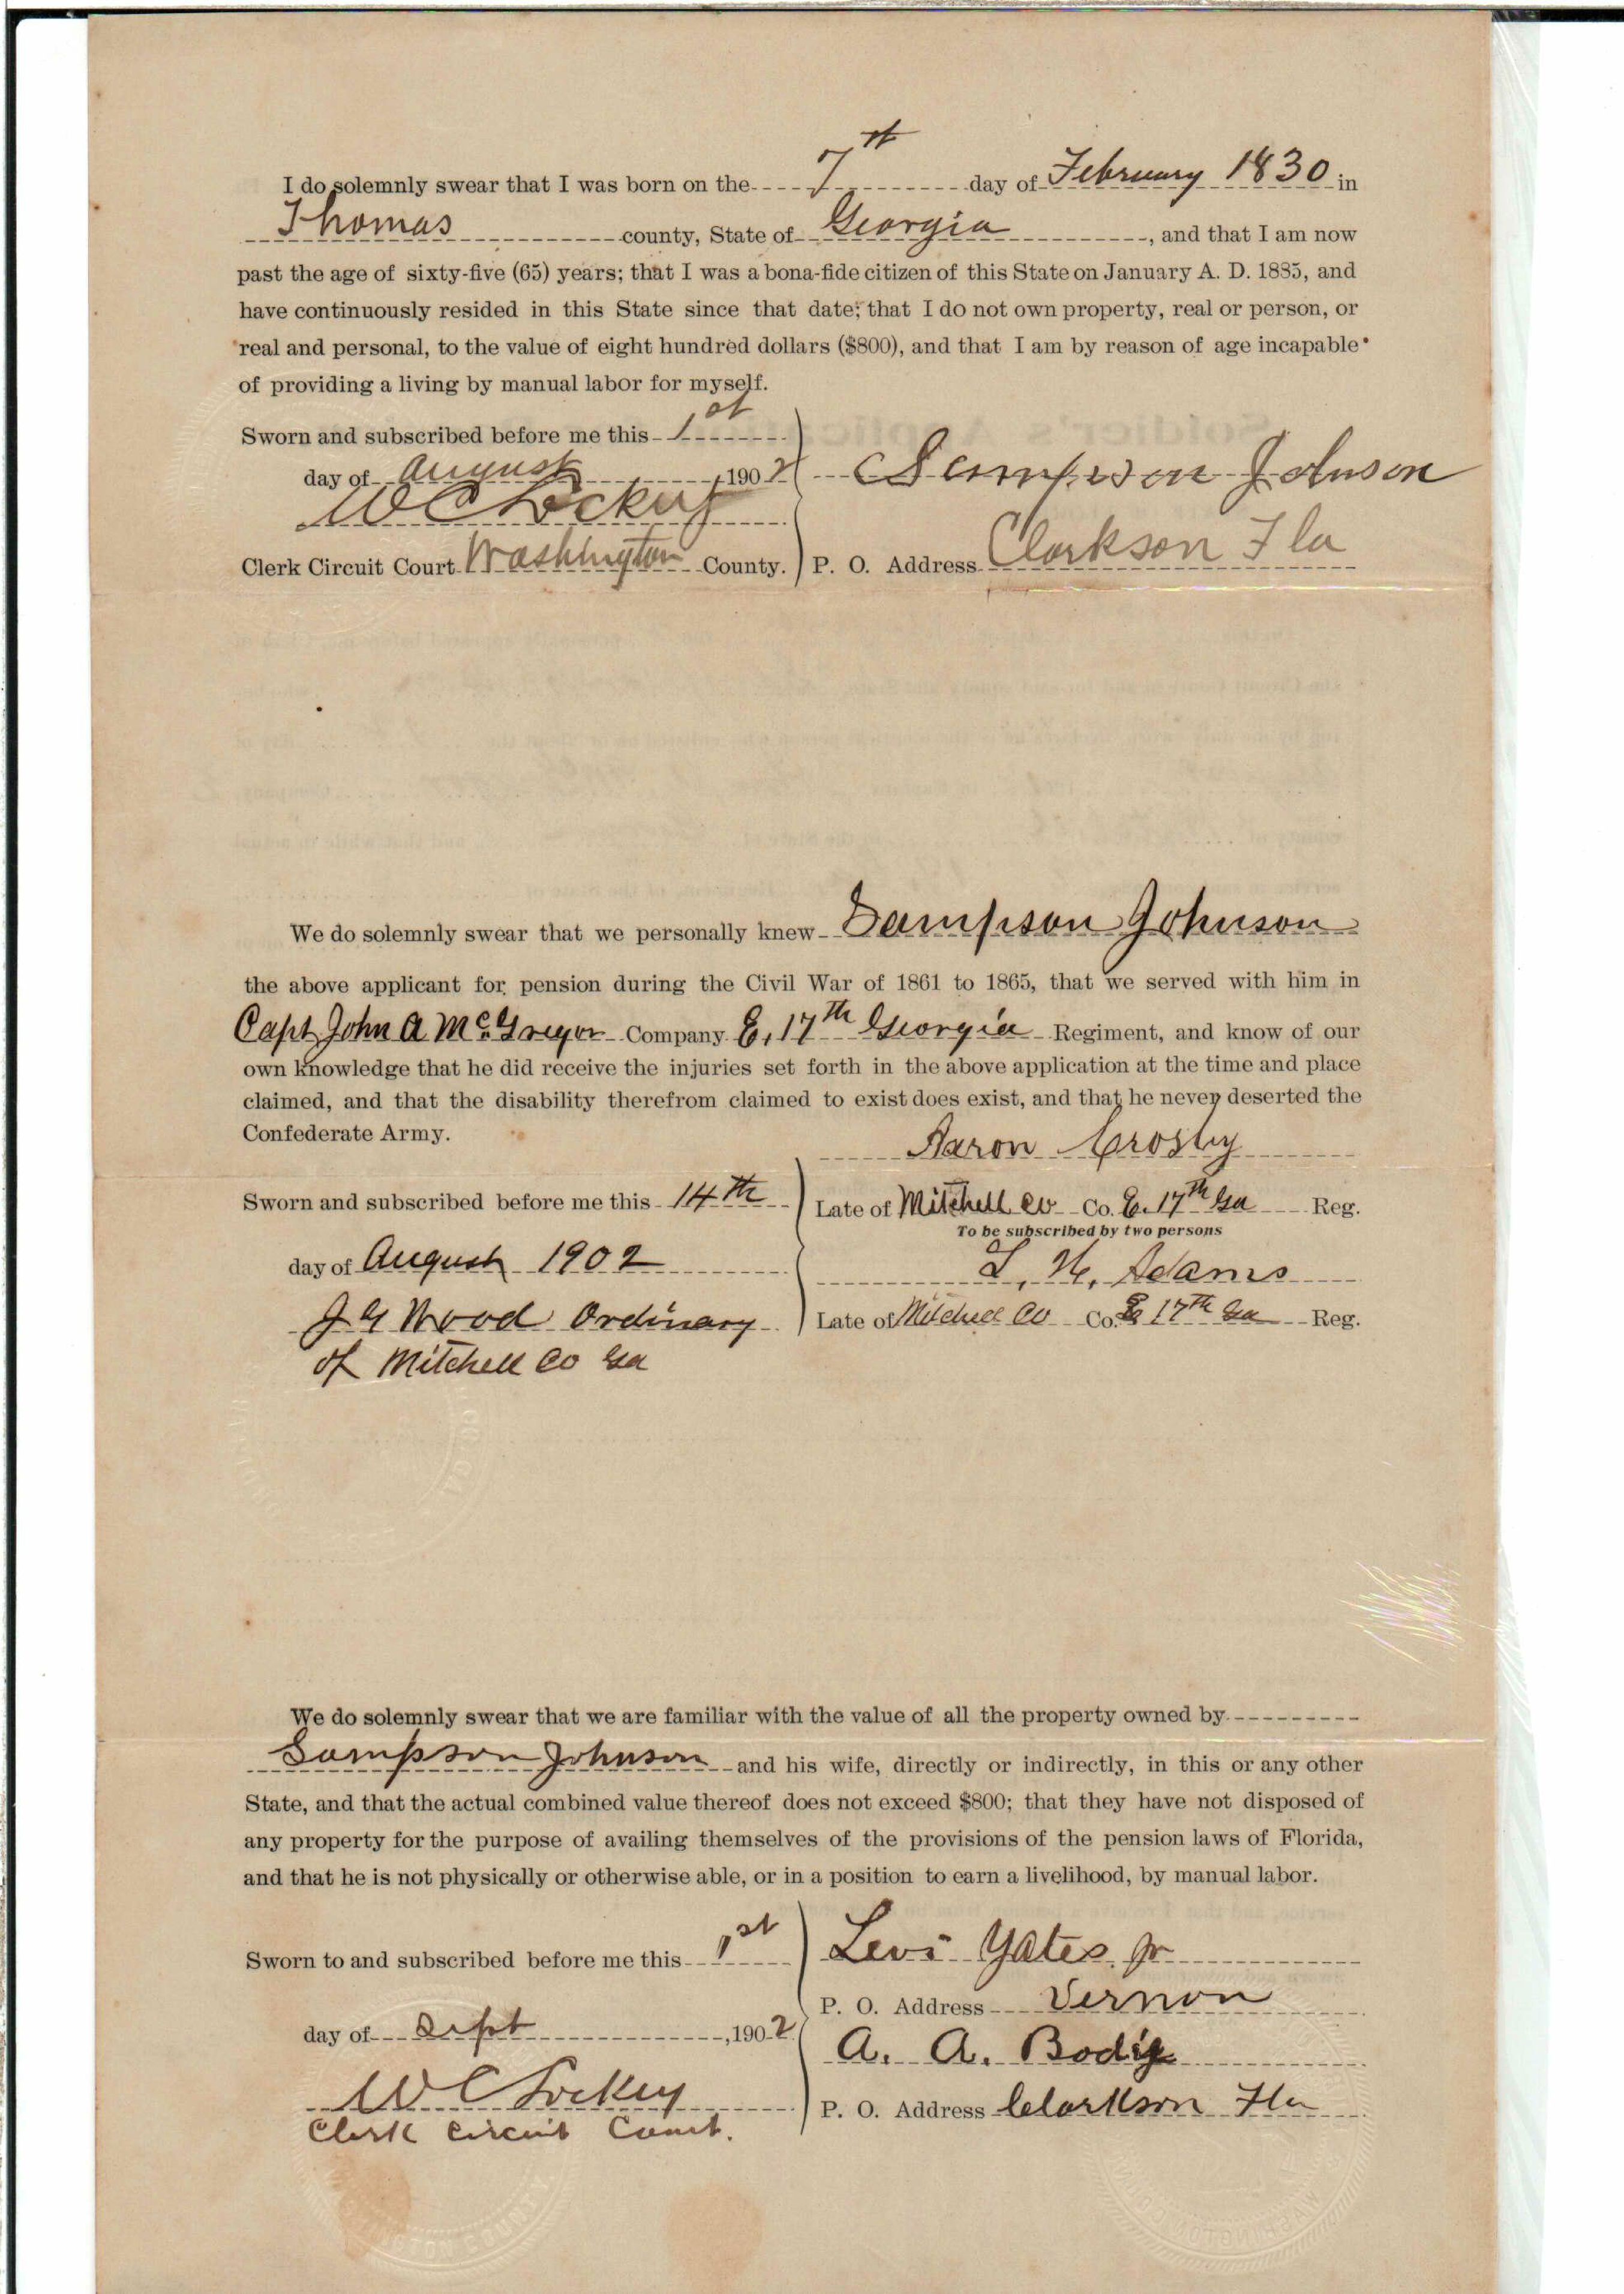 I do solemnly swear that I was born on the 7th day of February 1830 in
Thomas county, State of Georgia, and that I am now
past the age of sixty-five (65) years; that I was a bona-fide citizen of this State on January A. D. 1885, and
have continuously resided in this State since that date; that I do not own property, real or person, or
real and personal, to the value of eight hundred dollars ($800), and that I am by reason of age incapable
of providing a living by manual labor for myself.
Sworn and subscribed before me this 1st
day of August, 1902 Sampson Johnson
W C Lockey
Clerk Circuit Court Washington County. P. O. Address Clarkson Fla
We do solemnly swear that we personally knew Sampson Johnson
the above applicant for pension during the Civil War of 1861 to 1865, that we served with him in
Capt John A McGregor Company E, 17th Georgia Regiment, and know of our
own knowledge that he did receive the injuries set forth in the above application at the time and place
claimed, and that the disability therefrom claimed to exist does exist, and that he never deserted the
Confederate Army.
Aaron Crosby
Sworn and subscribed before me this 14th Late of Mitchell Co Co. E. 17th Ga Reg.
To be subscribed by two persons
day of August 1902 L. H. Adams
J G Wood Ordinary Late of Mitchell Co Co. E 17th Ga Reg.
of Mitchell Co Ga
We do solemnly swear that we are familiar with the value of all the property owned by
Sampson Johnson and his wife, directly or indirectly, in this or any other
State, and that the actual combined value thereof does not exceed $800; that they have not disposed of
any property for the purpose of availing themselves of the provisions of the pension laws of Florida,
and that he is not physically or otherwise able, or in a position to earn a livelihood, by manual labor.
Sworn to and subscribed before me this 1st Levi Yates Jr
P. O. Address Vernon
day of Sept, 1902
A. A. Bodie
W C Lockey P. O. Address Clarkson Fla
Clerk Circuit Court.